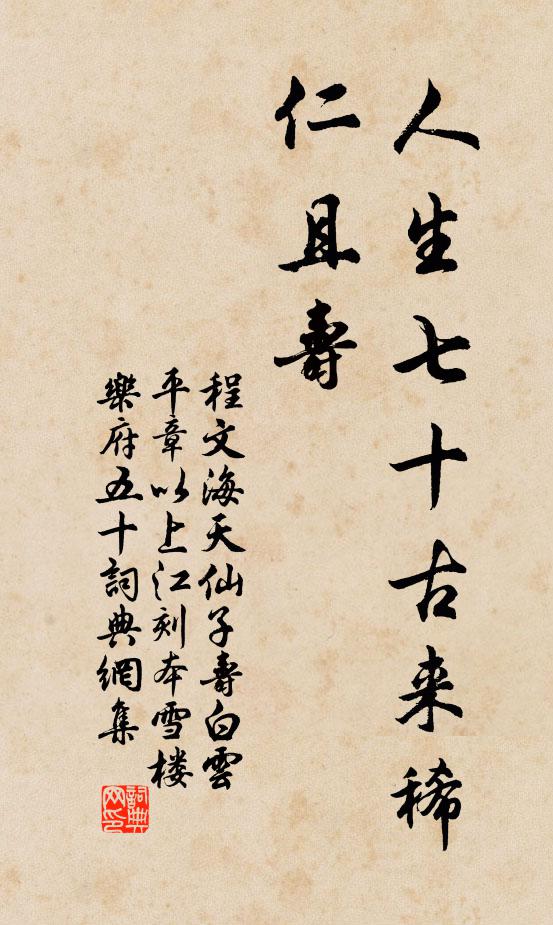 人生七十古来稀
仁且壽
程文海天仙子壽白雲
平章以上江刻本雪楼
樂府五十詞典網集
詞典网印